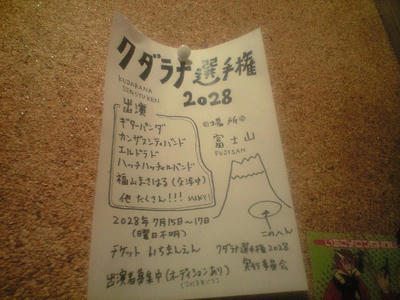 クダラナ選手権
KUDARANA
SENSYUKEN
2028
出演
ギターパンダ
カンザスシティバンド
エルドラド
ハッチハッチェルバンド
福山まさはる(交渉中)
他 たくさん!!!
◎場所◎
富士山
FUJISAN
このへん
2028年7月15日~17日
(曜日不明)
チケット いちまんえん
クダラナ選手権2028
実行委員会
出演者募集中(オーディションあり)